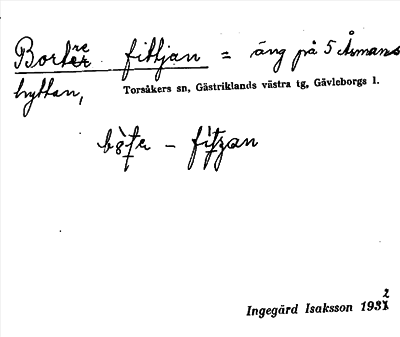 Bortre fittjan = äng på 5 Åsmans
hyttan,
Torsåkers sn, Gästriklands västra tg, Gävleborgs l.
Ingegärd Isaksson 1932